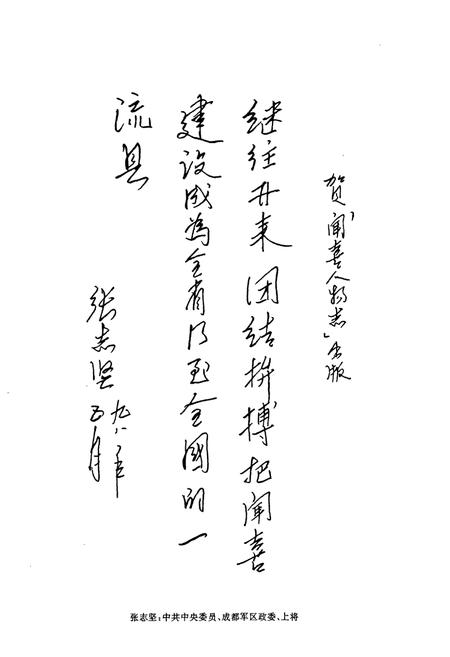 贺「闻喜人物志」出版
继往开来团结拚搏把闻喜
建设成为全省乃至全國的一
流县
张志坚
九八年
五月
张志坚：中共中央委员、成都军区政委、上将